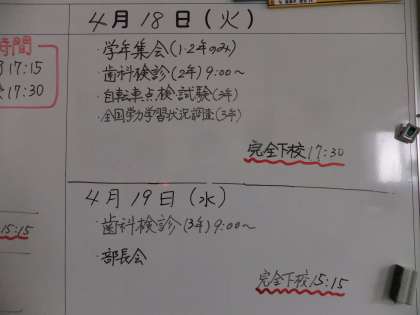 時間
17:15
17:30
15:15
4月18日(火)
・学年集会(1・2年のみ)
・歯科検診(2年)9:00〜
・自転車点検試験(3年)
・全国学力学習状況調査(3年)
完全下校17:30
4月19日(水)
・歯科検診(3年)9:00〜
・部長会
完全下校15:15